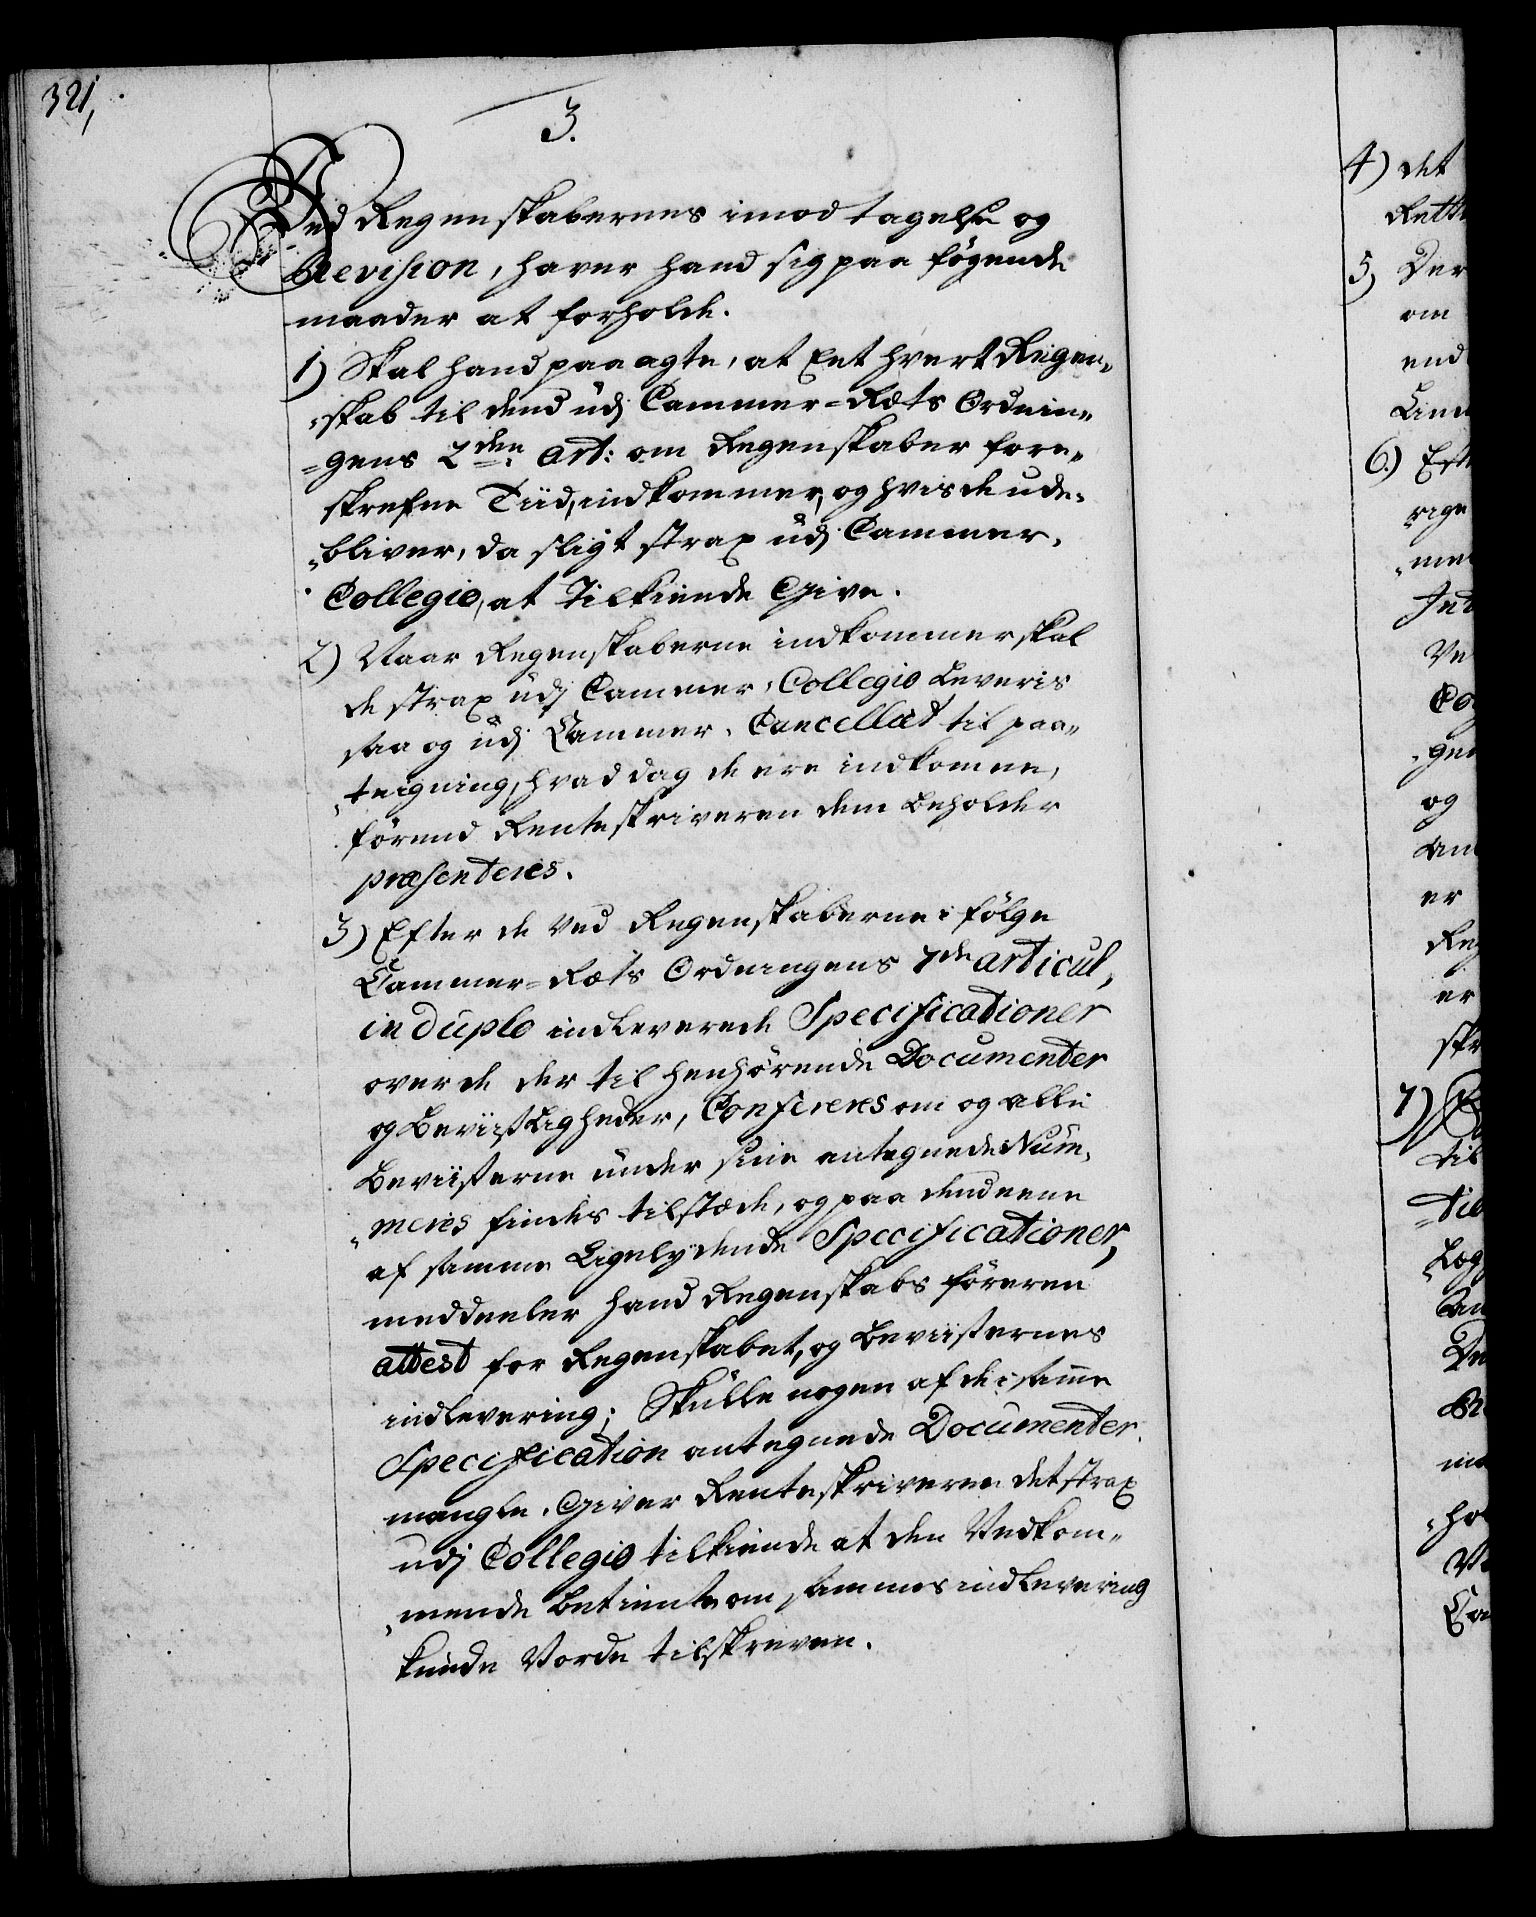 321,
3.
Ved Regenskabernes imodtagelse og
Revision, haver hand sig paa føgende
maader at forholde.
1) Skal hand paaagte, at Eet hvert Regen„
„skab til dend udj Cammer=Rets Ordnin„
=gens 2den art: om Regenskaber fore„
skrefne Tiid, indkommer, og hvis de ude„
„bliver, da sligt strax udj Cammer„
Collegio, at Tilkiende Give.
2) Naar Regenskaberne indkommer skal
de strax udj Cammer„Collegio Leveris
saa og udj Cammer„Cancelliet til paa„
„teigning, hvad dag de ere indkomne,
førend Renteskriveren dem beholder
præsenteres.
3) Efter de ved Regenskaberne i følge
Cammer=Rets Ordningens 7de articul,
in duplo indleverede Specificationer
over de der til henhørende Documenter
og Beviistligheder, Confereres om og alle
Beviisterne under sine antegnede Num„
„meres findes tilstede, og paa dend eene
af samme Ligelydende Specificationer,
meddeeler hand Regenskabs føreren
attest for Regenskabet, og Beviisternes
indlevering; Skulle nogen af de i samme
Specification antegnede Documenter
mangle, Giver Renteskriveren det strax
udj Collegio tilkiende at den Vedkom„
„mende betiente om sammes indlevering
kunde Vorde tilskreven.
4) det
5) Der
om
end
6.)
rige
og
er
er
7)
til